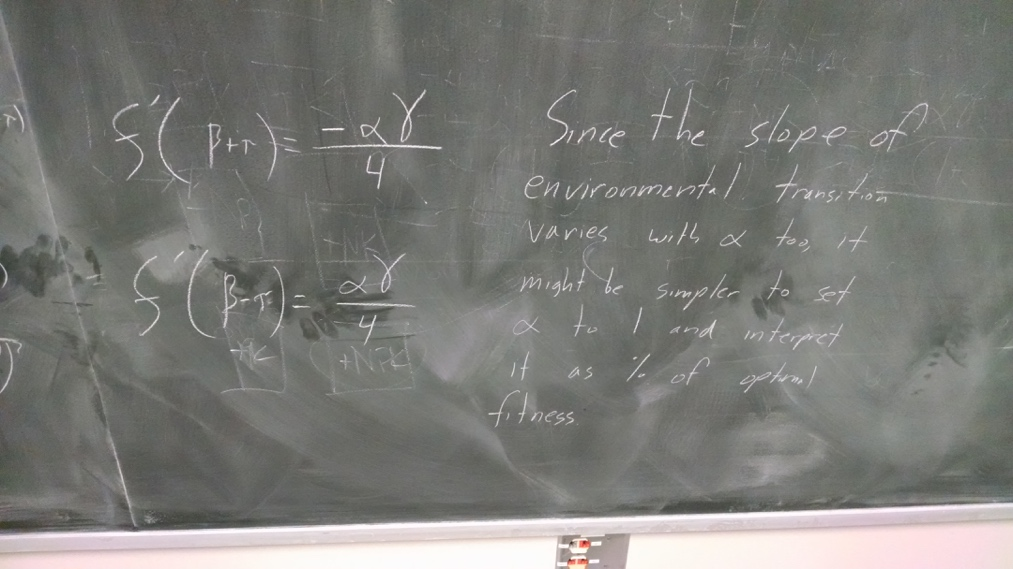 f'(β+τ) = -αγ/4
f'(β-τ) = αγ/4
+NK
+NPK
Since the slope of
environmental transition
varies with α too, it
might be simpler to set
α to 1 and interpret
it as % of optimal
fitness.